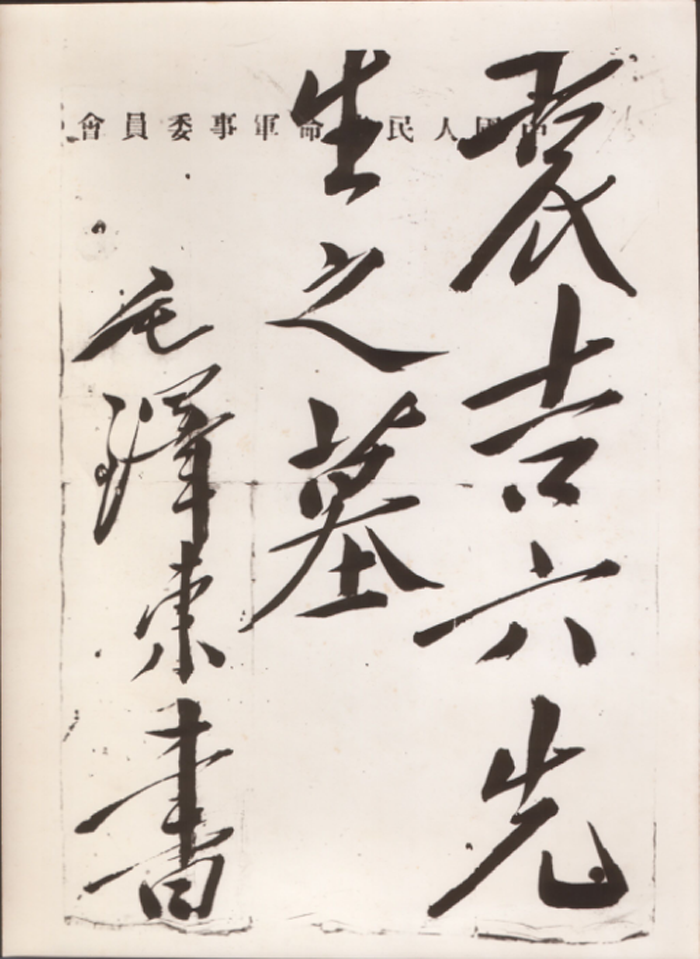 中國人民革命軍事委員會
袁吉六先
生之墓
毛澤東書